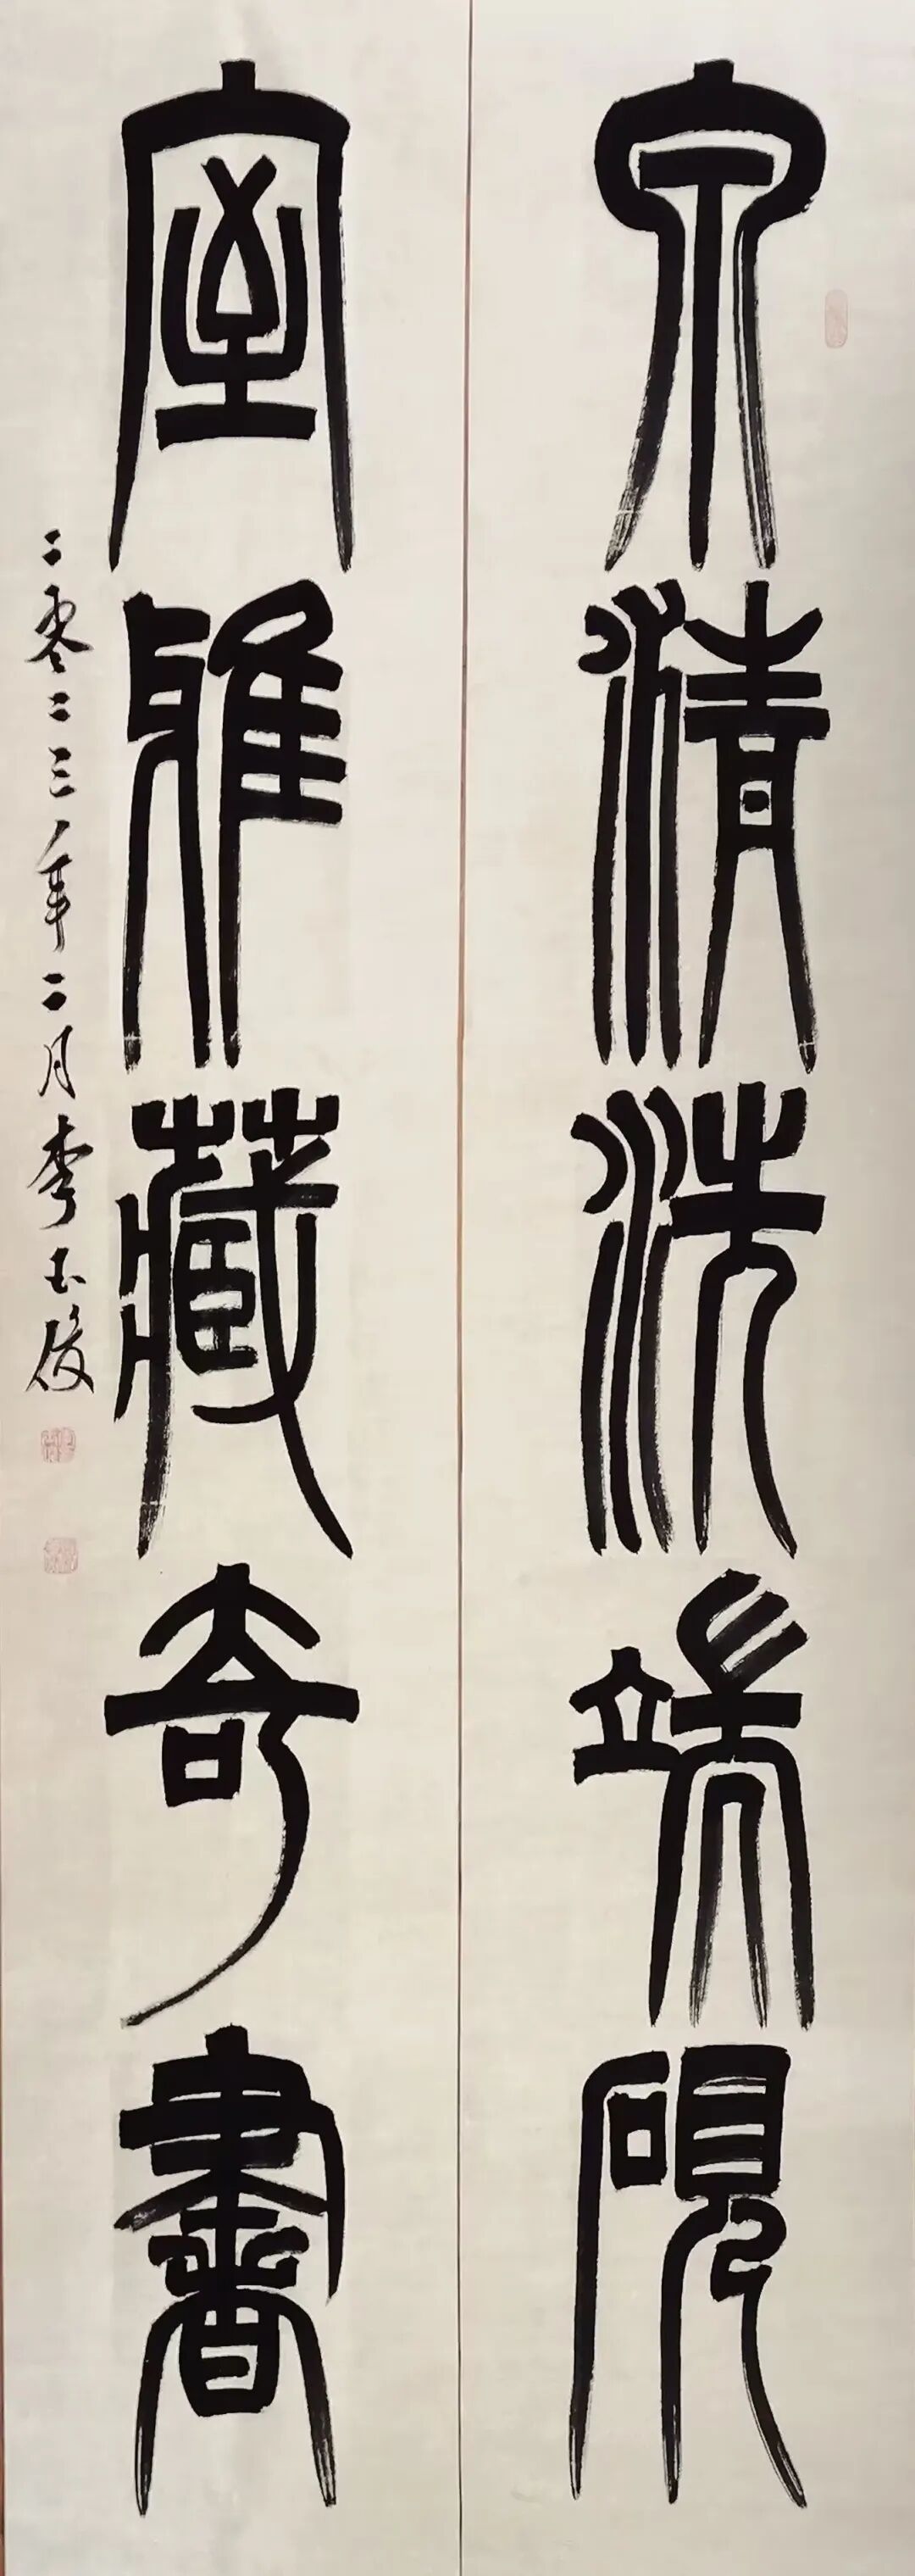 泉清洗端硯
室雅藏奇書
二零二三年二月李玉俊